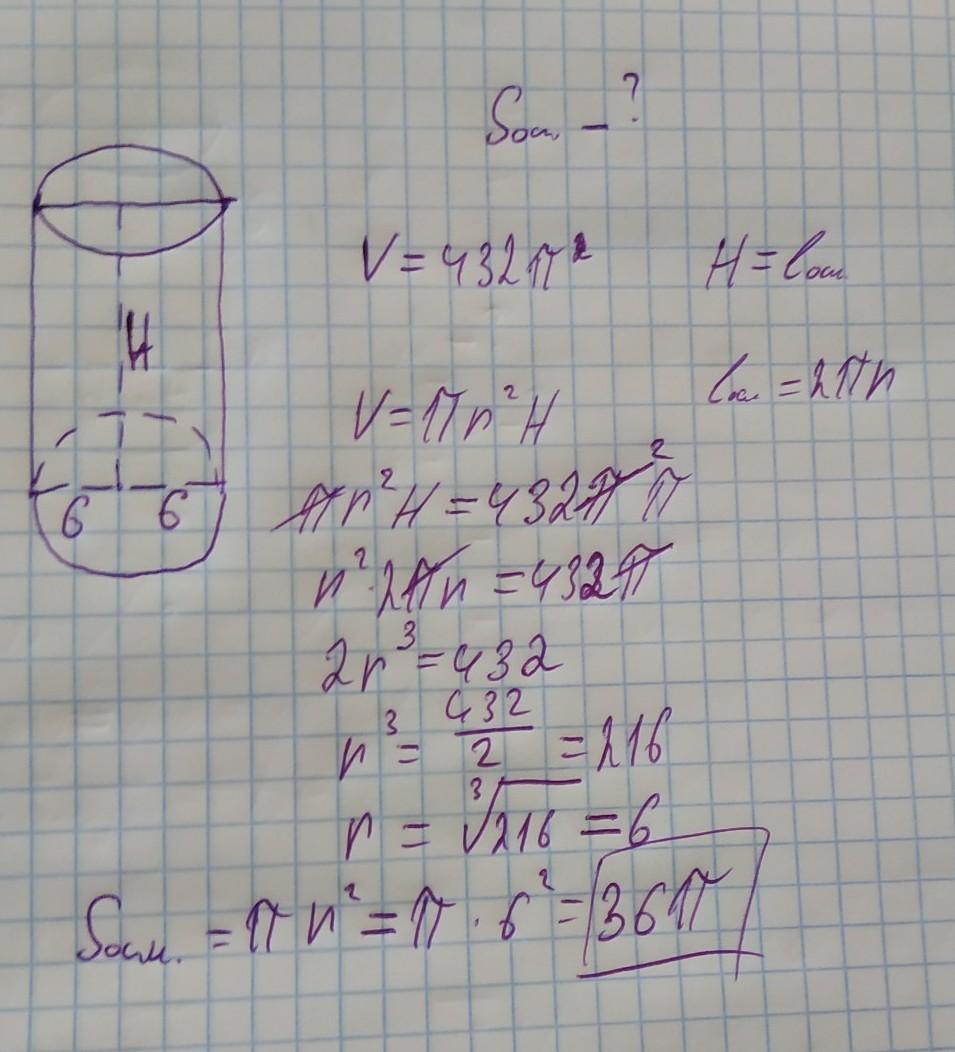 Sосн. – ?
V = 432π² H = lосн
V = πr²H lосн = 2πr
H
πr²H = 432π² π
6 6
r² · 2πr = 432π
2r³ = 432
r³ = 432/2 = 216
r = ³√216 = 6
Sосн. = πr² = π · 6² = 36π